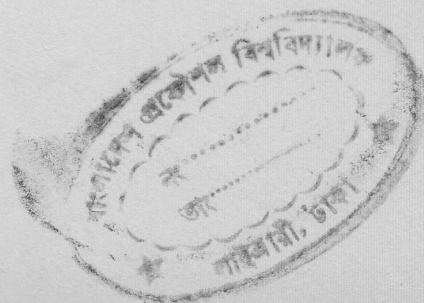 বাংলাদেশ প্রকৌশল বিশ্ববিদ্যালয়
নং..................
তাং..................
লাইব্রেরী, ঢাকা